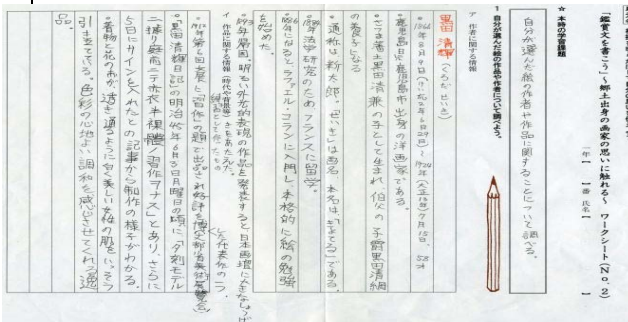 「鑑賞文を書こう」～郷土出身の画家の思いに触れる～　ワークシート(No.2)
一年【　】番　氏名【　】
☆　本時の学習課題
自分が選んだ絵の作者や作品に関することについて調べる。
1　自分が選んだ絵の作品や作者について調べよう。
ア　作者に関する情報
黒田清輝(くろだせいき)
1866年8月9日(慶応2年6月29日)～1924年(大正13年)7月15日。58才
・鹿児島県鹿児島市出身の洋画家である。
・さつま藩士黒田清兼の子として生まれ、伯父の子爵黒田清綱
の養子となる
・通称は新太郎。「せいき」は画名、本名は「きよてる」である。
1884年法学研究のためフランスに留学。
1886年になるとラファエル・コランに入門し、本格的に絵の勉強
を始めた。
1893年帰国。明るい外光的表現の作品を発表すると日本画壇に
イ　作品に関する情報(時代や背景等)
年第6回文展に「習作」の題で出品され好評を博した
・「黒田清輝日記」の明治45年6月3日月曜日の頃に「夕刻モデル
裸體ノ習作ヲナス」とあり、さらに
5日にサインを入れたとの記事から制作の様子がわかる。
・着物と花の赤が透き通るように白く美しい女性の肌をいっそう
引き立てている。色彩の心地よい調和を感じさせてくれる逸
品。